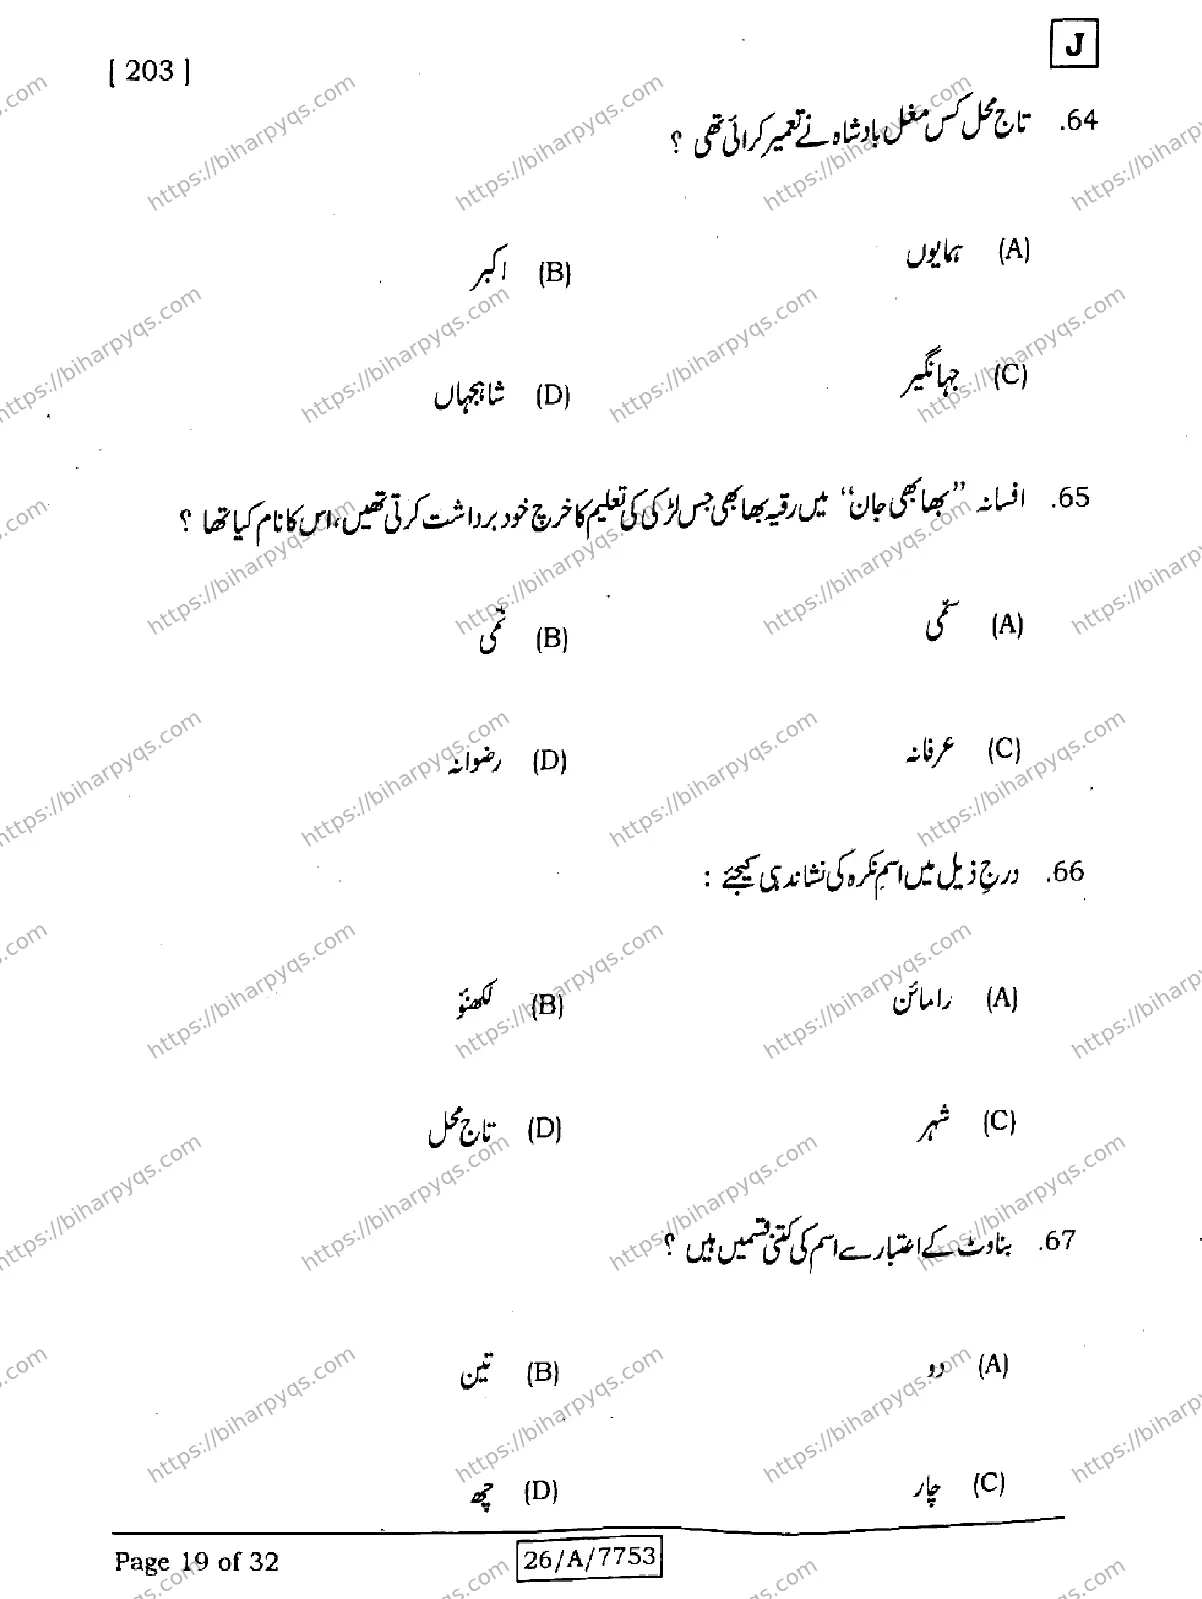 [ 203 ]
J
64. تاج محل کس مغل بادشاہ نے تعمیر کرائی تھی ؟
(A) ہمایوں (B) اکبر
(C) جہانگیر (D) شاہجہاں
65. افسانہ ”بھابھی جان“ میں رقیہ بھابھی جس لڑکی کی تعلیم کا خرچ خود برداشت کرتی تھیں، اس کا نام کیا تھا ؟
(A) سمّی (B) نمّی
(C) عرفانہ (D) رضوانہ
66. درجِ ذیل میں اسمِ نکرہ کی نشاندہی کیجئے :
(A) رامائن (B) لکھنؤ
(C) شہر (D) تاج محل
67. بناوٹ کے اعتبار سے اسم کی کتنی قسمیں ہیں ؟
(A) دو (B) تین
(C) چار (D) چھ
Page 19 of 32
26/A/7753
https://biharpyqs.com